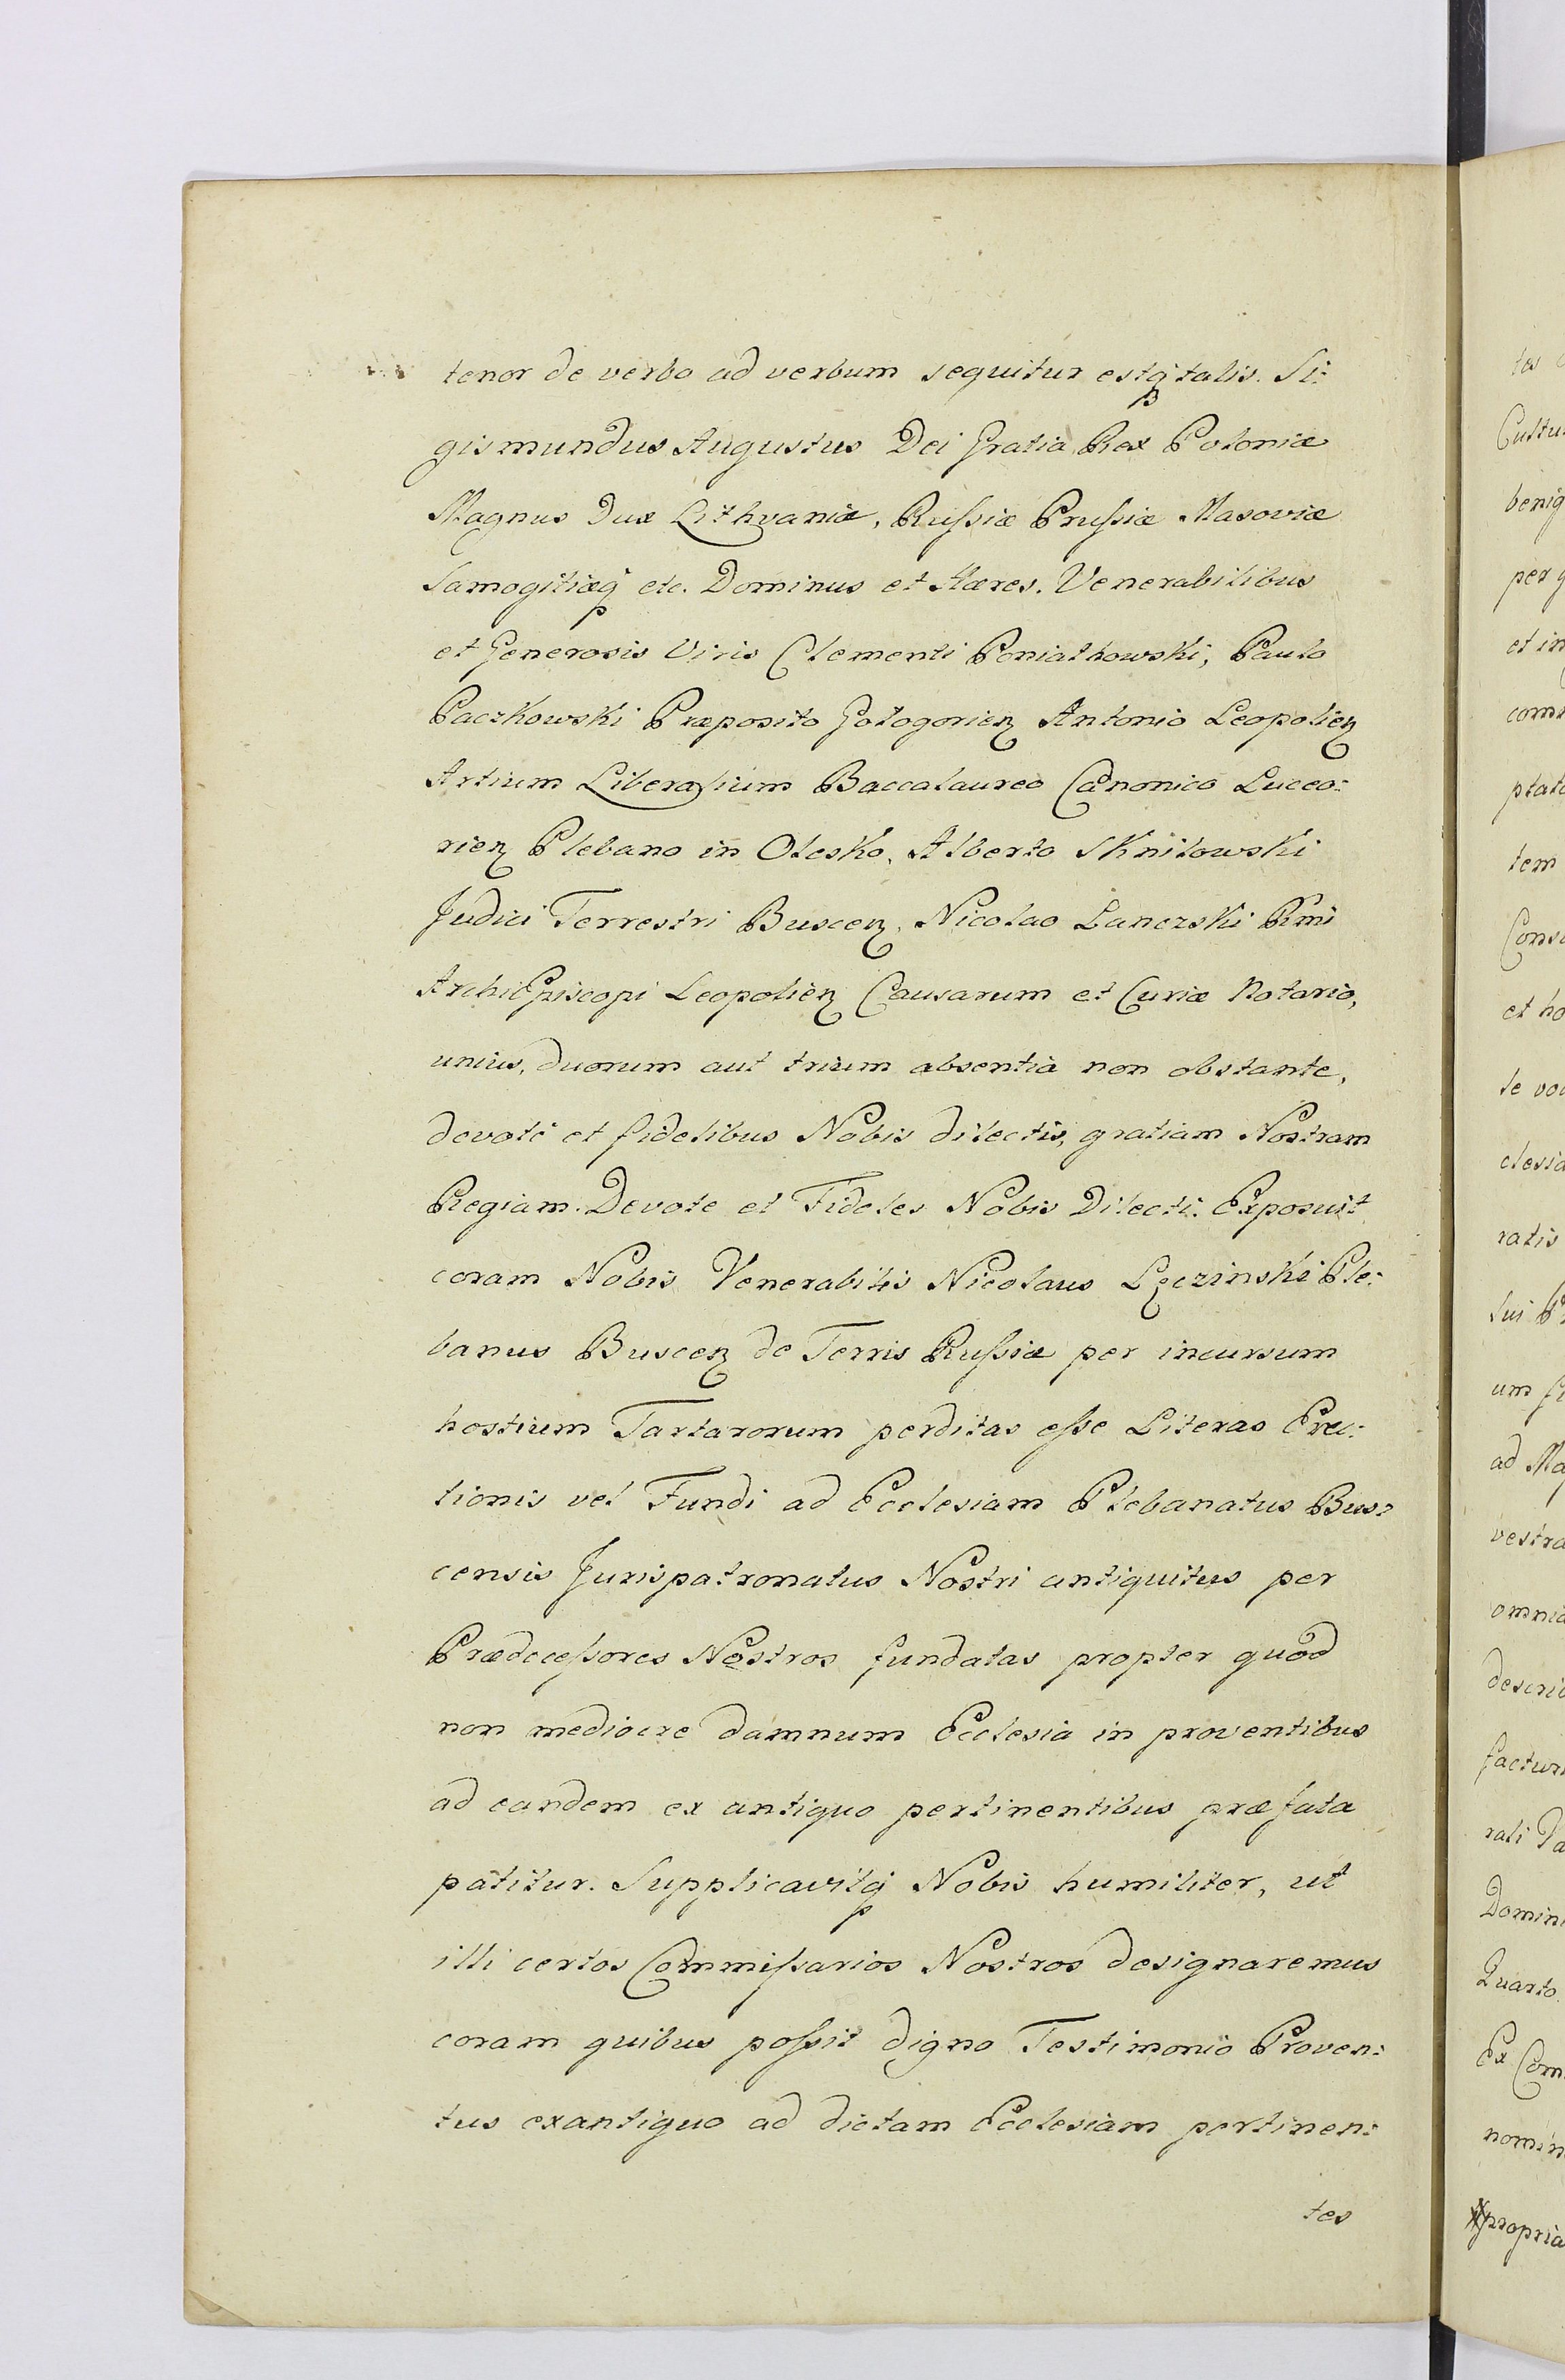 tenor de verbo ad verbum sequitur estq́ talis. Si:
gismundus Augustus Dei Gratia Rex Poloniæ
Magnus Dux Lithvaniæ, Rufsiæ Prufsiæ Masoviæ
Samogitiæq́ etc. Dominus et Hæres. Venerabilibus
et Generosis Viris Clementi Poniathowski, Paulo
Paczkowski Præposito Gołogorień Antonio Leopolień
Artium Liberalium Baccalaureo Canonico Luceo:
rień Plebano in Olesko, Alberto Sknilowski
Judici Terrestri Busceń, Nicolao Lanczski Rm̃i
ArchiEpiscopi Leopolień Causarum et Curiæ Notario,
unius, duorum aut trium absentia non obstante,
devotè et fidelibus Nobis dilectis, gratiam Nostram
Regiam. Devote et Fideles Nobis Dilecti. Exposuit
coram Nobis Venerabilis Nicolaus Lęczinski Ple:
banus Busceń de Terris Rufsiæ per incursum
hostium Tartarorum perditas efse Literas Erec:
tionis vel Fundi ad Ecclesiam Plebanatus Bus:
censis Jurispatronatus Nostri antiquitus per
Prædecefsores Nostros fundatas propter quod
non mediocre damnum Ecclesia in proventibus
ad eandem ex antiquo pertinentibus præfata
patitur. Supplicavitq́ Nobis humiliter, ut
illi certos Commifsarios Nostros designaremus
coram quibus pofsit digno Testimonio Proven:
tus exantiquo ad dictam Ecclesiam pertinen:
tes